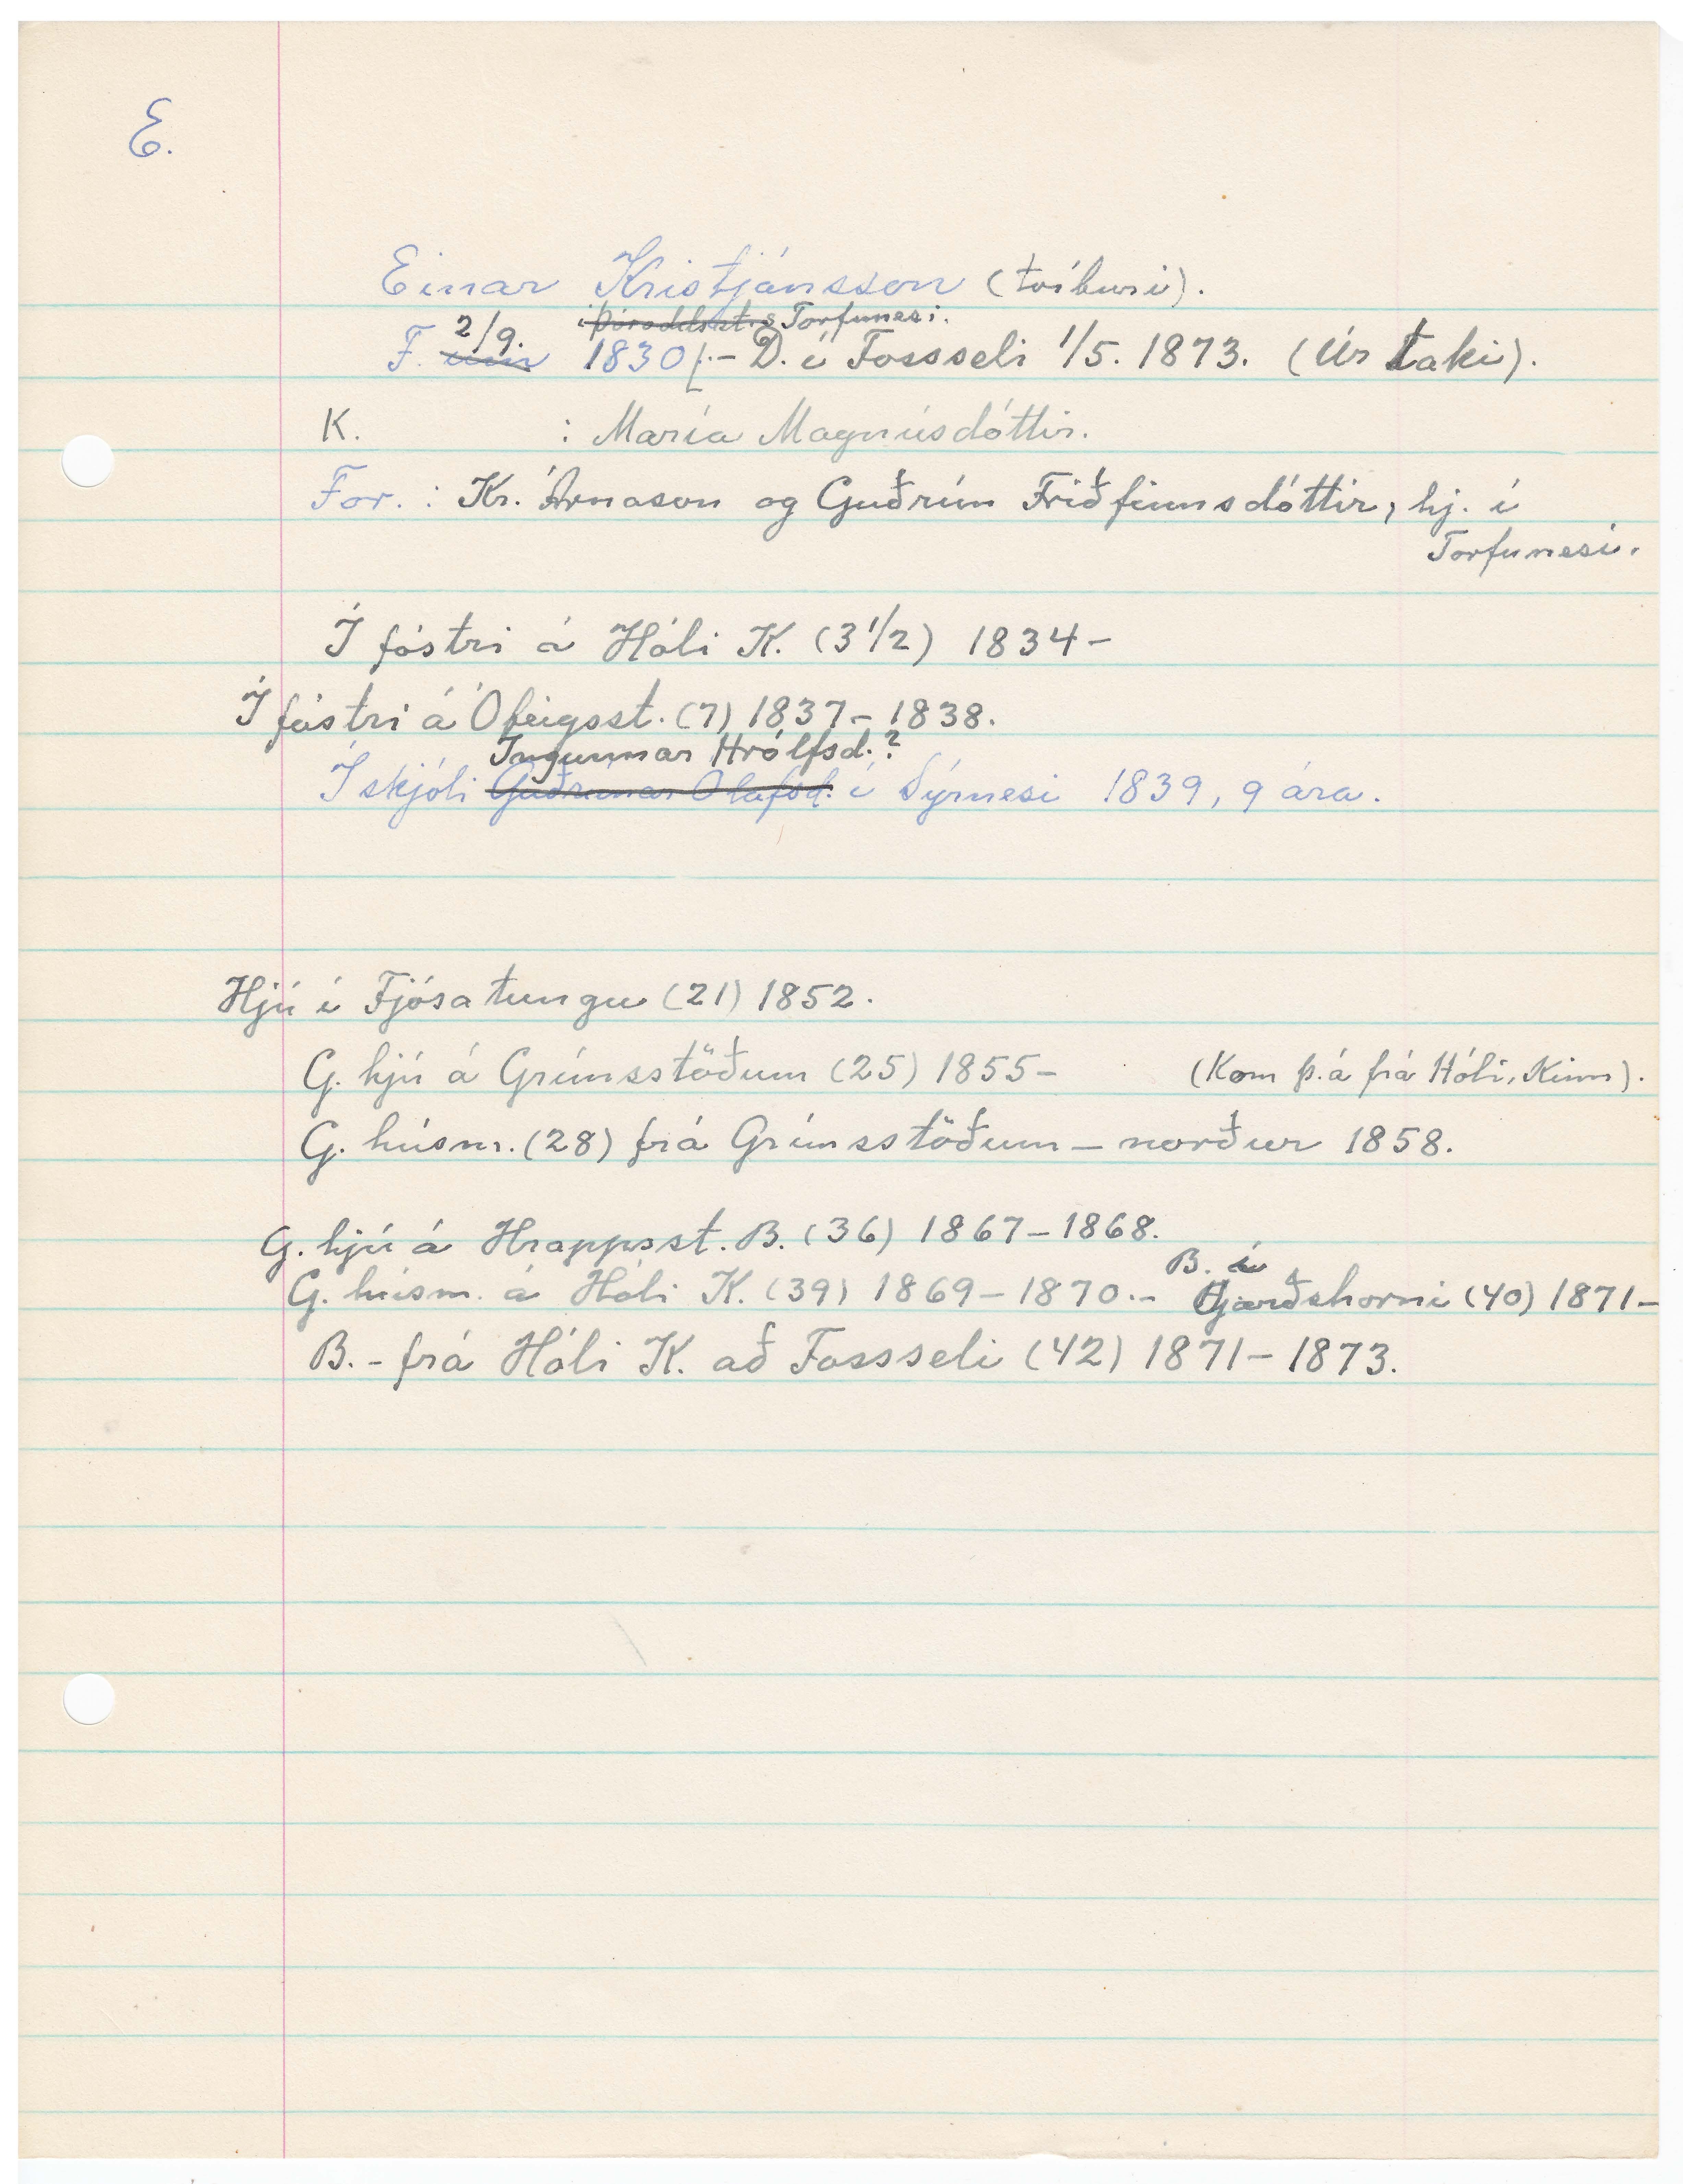 E.
Einar Kristjánsson (tvíburi).
í Þóroddsst.s Torfunesi.
F. um 2/9. 1830. – D. í Fossseli 1/5. 1873. (Úr taki).
K. : María Magnúsdóttir.
For. : Kr. Árnason og Guðrún Friðfinnsdóttir, hj. í
Torfunesi.
Í fóstri á Hóli K. (3 1/2) 1834–
Í fóstri á Ófeigsst. (7) 1837–1838.
Ingunnar Hrólfsd.?
Í skjóli Guðrúnar Ólafsd. í Sýrnesi 1839, 9 ára.
Hjú í Fjósatungu (21) 1852.
G. hjú á Grímsstöðum (25) 1855– (Kom þ.á frá Hóli, Kinn).
G. húsm. (28) frá Grímsstöðum – norður 1858.
G. hjú á Hrappsst. B. (36) 1867–1868.
B. í
G. húsm. á Hóli K. (39) 1869–1870.– Gjarðshorni (40) 1871–
B. – frá Hóli K. að Fossseli (42) 1871–1873.